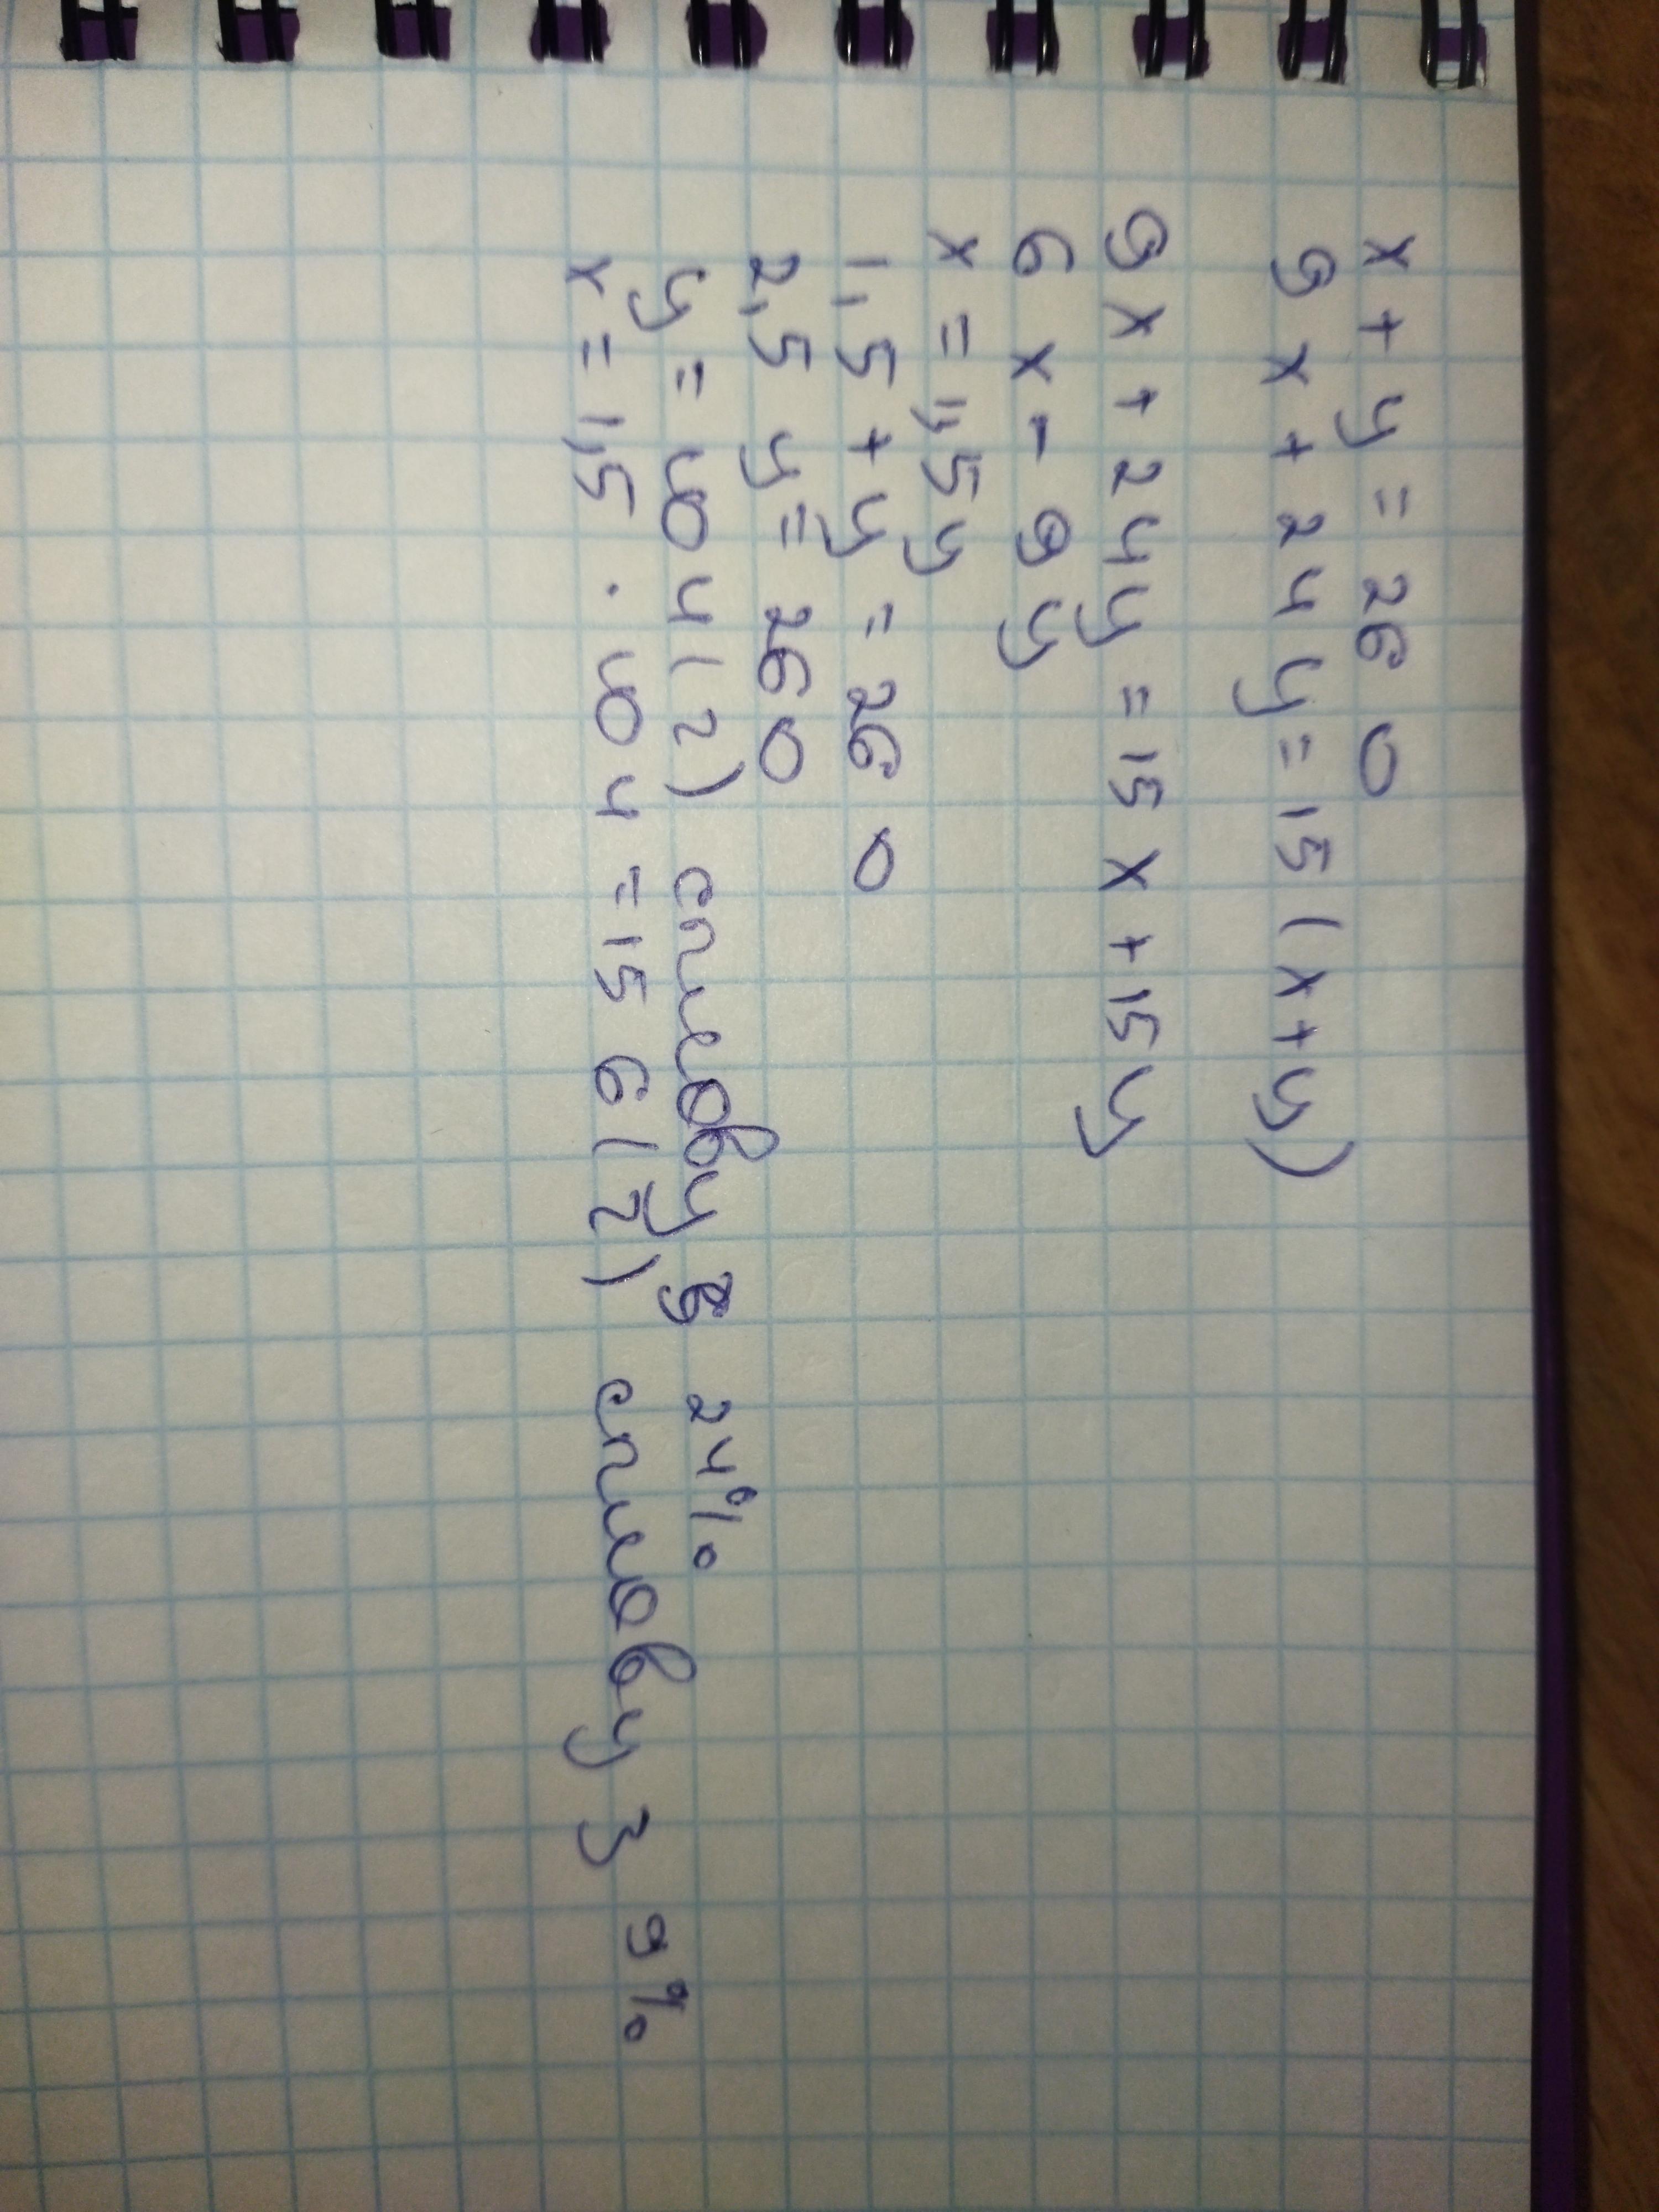 x + y = 260
9x + 24y = 15(x+y)
9x + 24y = 15x + 15y
6x - 9y
x = 1,5y
1,5 + y = 260
2,5 y = 260
y = 104 (2) сплаву з 24%
x = 1,5 · 104 = 156 (2) сплаву з 9%